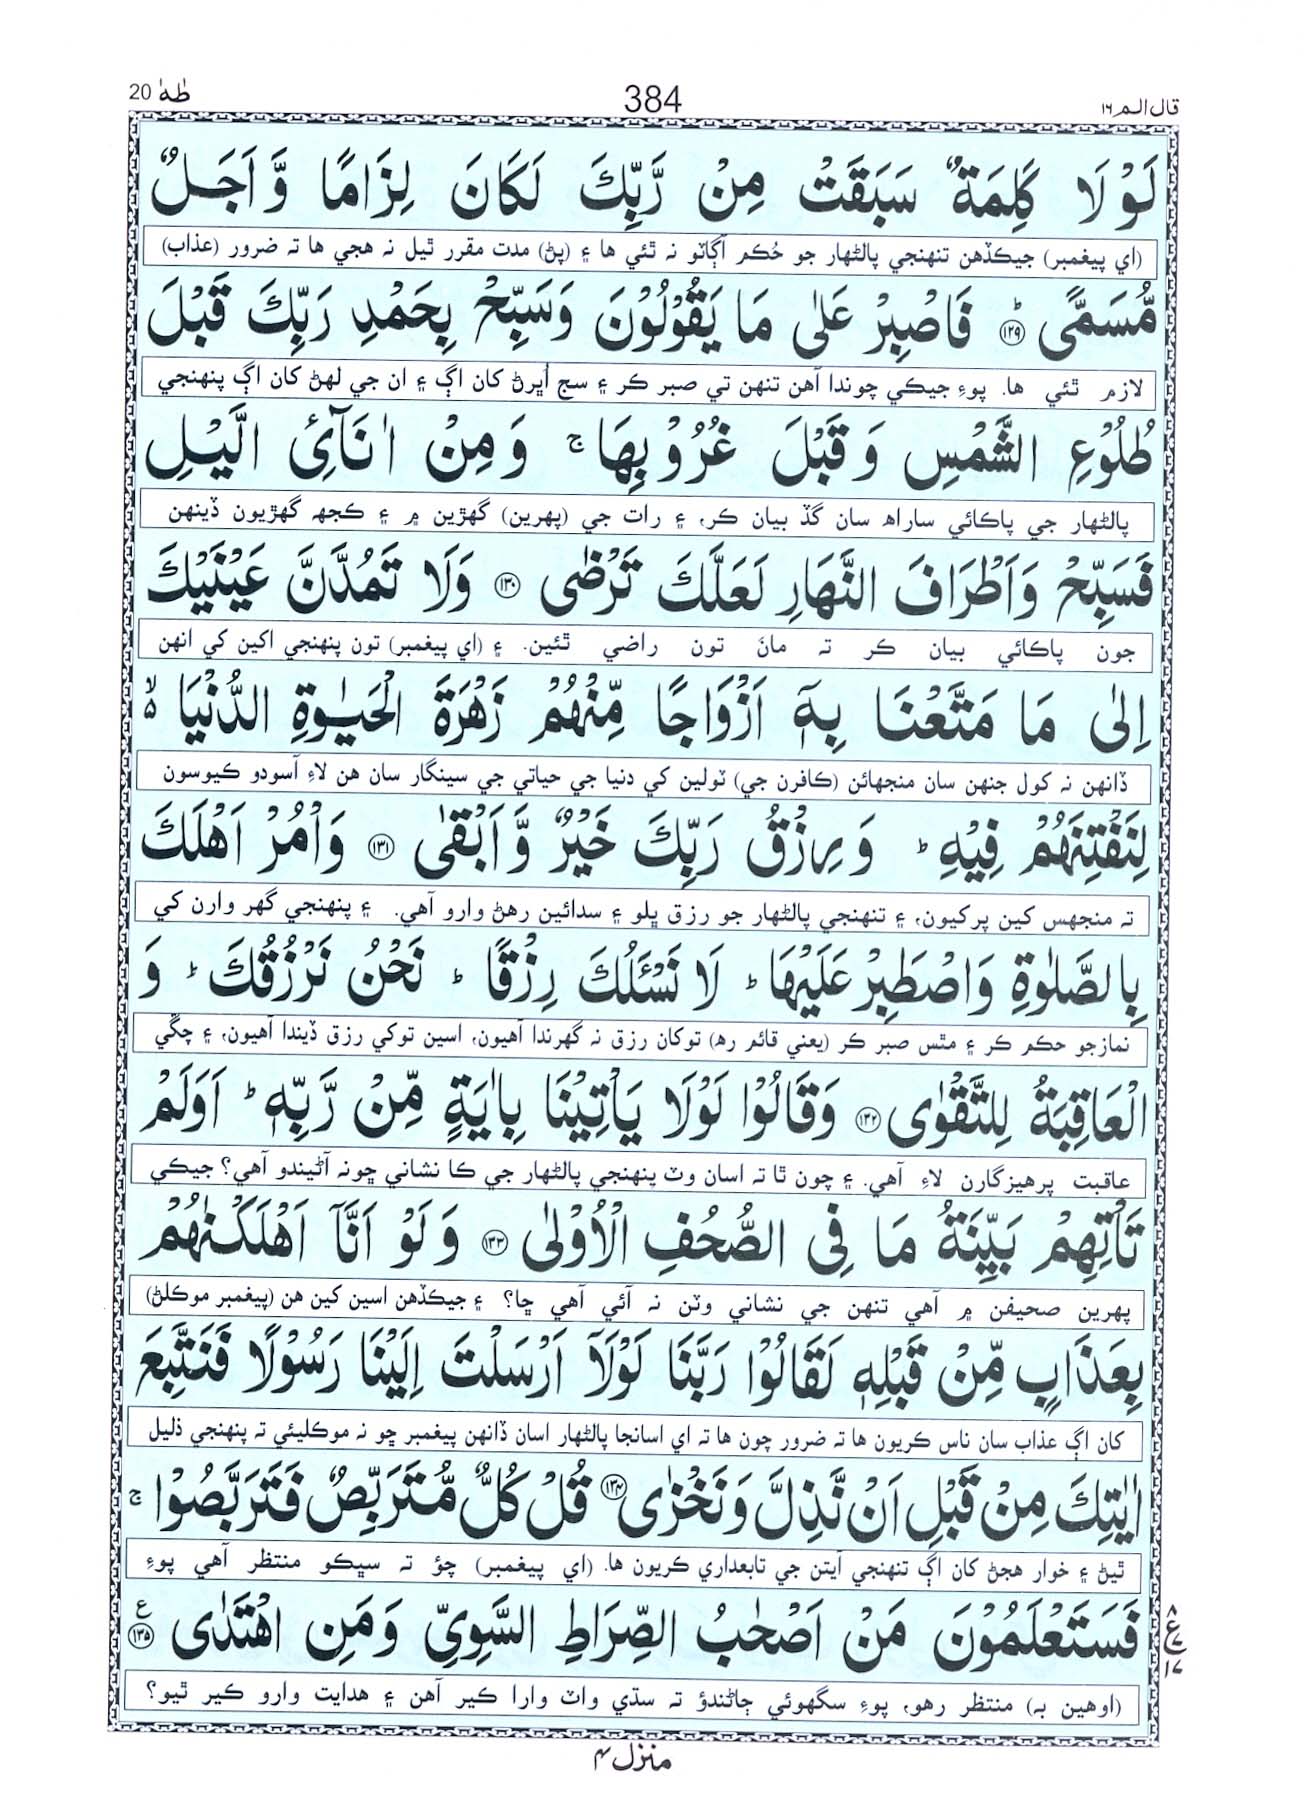 قال الم ١٦ 384 طٰهٰ 20
لَوْلَا كَلِمَةٌ سَبَقَتْ مِنْ رَّبِّكَ لَكَانَ لِزَامًا وَّاَجَلٌ
(اي پيغمبر) جيڪڏهن تنهنجي پالڻهار جو حُڪم اڳاٽو نہ ٿئي ها ۽ (پڻ) مدت مقرر ٿيل نہ هجي ها تہ ضرور (عذاب)
مُّسَمًّى ؕ ﴿١٢٩﴾ فَاصْبِرْ عَلٰى مَا يَقُوْلُوْنَ وَسَبِّحْ بِحَمْدِ رَبِّكَ قَبْلَ
لازم ٿئي ها. پوءِ جيڪي چوندا آهن تنهن تي صبر ڪر ۽ سج اُڀرڻ کان اڳ ۽ ان جي لهڻ کان اڳ پنهنجي
طُلُوْعِ الشَّمْسِ وَقَبْلَ غُرُوْبِهَا ۚ وَمِنْ اٰنَآئِ الَّيْلِ
پالڻهار جي پاڪائي ساراهہ سان گڏ بيان ڪر، ۽ رات جي (پهرين) گهڙين ۾ ۽ ڪجهہ گهڙيون ڏينهن
فَسَبِّحْ وَاَطْرَافَ النَّهَارِ لَعَلَّكَ تَرْضٰى ﴿١٣٠﴾ وَلَا تَمُدَّنَّ عَيْنَيْكَ
جون پاڪائي بيان ڪر تہ مانَ تون راضي ٿئين. ۽ (اي پيغمبر) تون پنهنجي اکين کي انهن
اِلٰى مَا مَتَّعْنَا بِهٖٓ اَزْوَاجًا مِّنْهُمْ زَهْرَةَ الْحَيٰوةِ الدُّنْيَا ۙ۵
ڏانهن نہ کول جنهن سان منجهائن (ڪافرن جي) ٽولين کي دنيا جي حياتي جي سينگار سان هن لاءِ آسودو ڪيوسون
لِنَفْتِنَهُمْ فِيْهِ ؕ وَرِزْقُ رَبِّكَ خَيْرٌ وَّاَبْقٰى ﴿١٣١﴾ وَاْمُرْ اَهْلَكَ
تہ منجهس کين پرکيون، ۽ تنهنجي پالڻهار جو رزق ڀلو ۽ سدائين رهڻ وارو آهي. ۽ پنهنجي گهر وارن کي
بِالصَّلٰوةِ وَاصْطَبِرْ عَلَيْهَا ؕ لَا نَسْـَٔلُكَ رِزْقًا ؕ نَحْنُ نَرْزُقُكَ ؕ وَ
نمازجو حڪم ڪر ۽ مٿس صبر ڪر (يعني قائم رهہ) توکان رزق نہ گهرندا آهيون، اسين توکي رزق ڏيندا آهيون، ۽ چڱي
الْعَاقِبَةُ لِلتَّقْوٰى ﴿١٣٢﴾ وَقَالُوْا لَوْلَا يَاْتِيْنَا بِاٰيَةٍ مِّنْ رَّبِّهٖ ؕ اَوَلَمْ
عاقبت پرهيزگارن لاءِ آهي. ۽ چون ٿا تہ اسان وٽ پنهنجي پالڻهار جي ڪا نشاني ڇونہ آڻيندو آهي؟ جيڪي
تَاْتِهِمْ بَيِّنَةُ مَا فِى الصُّحُفِ الْاُوْلٰى ﴿١٣٣﴾ وَلَوْ اَنَّآ اَهْلَكْنٰهُمْ
پهرين صحيفن ۾ آهي تنهن جي نشاني وٽن نہ آئي آهي ڇا؟ ۽ جيڪڏهن اسين کين هن (پيغمبر موڪلڻ)
بِعَذَابٍ مِّنْ قَبْلِهٖ لَقَالُوْا رَبَّنَا لَوْلَآ اَرْسَلْتَ اِلَيْنَا رَسُوْلًا فَنَتَّبِعَ
کان اڳ عذاب سان ناس ڪريون ها تہ ضرور چون ها تہ اي اسانجا پالڻهار اسان ڏانهن پيغمبر ڇو نہ موڪليئي تہ پنهنجي ذليل
اٰيٰتِكَ مِنْ قَبْلِ اَنْ نَّذِلَّ وَنَخْزٰى ﴿١٣٤﴾ قُلْ كُلٌّ مُّتَرَبِّصٌ فَتَرَبَّصُوْا ۚ
ٿيڻ ۽ خوار هجڻ کان اڳ تنهنجي آيتن جي تابعداري ڪريون ها. (اي پيغمبر) چؤ تہ سڀڪو منتظر آهي پوءِ
فَسَتَعْلَمُوْنَ مَنْ اَصْحٰبُ الصِّرَاطِ السَّوِىِّ وَمَنِ اهْتَدٰى ﴿١٣٥﴾ ع
٨ ع ١٧
(اوهين بہ) منتظر رهو، پوءِ سگهوئي ڄاڻندؤ تہ سڌي واٽ وارا ڪير آهن ۽ هدايت وارو ڪير ٿيو؟
منزل ٤